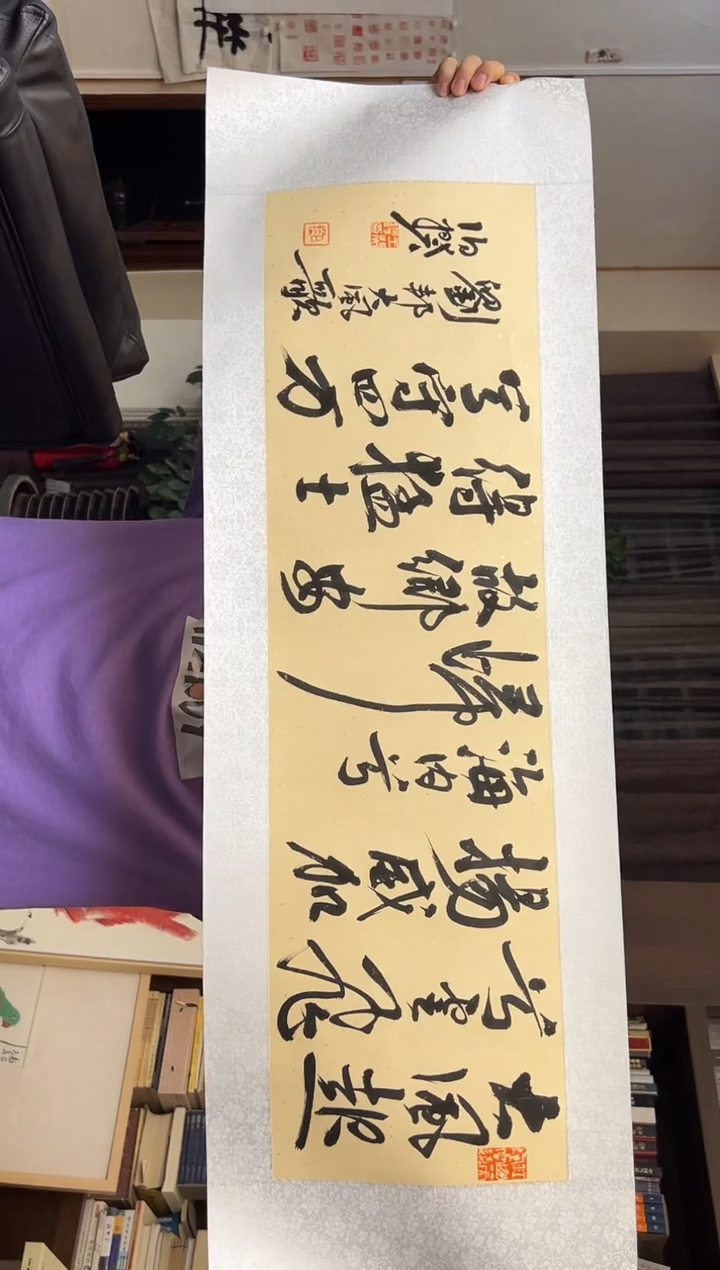 大風起
兮雲飛
揚威加
海内兮
歸
故鄉安
得猛士
兮守四方
劉邦大風歌